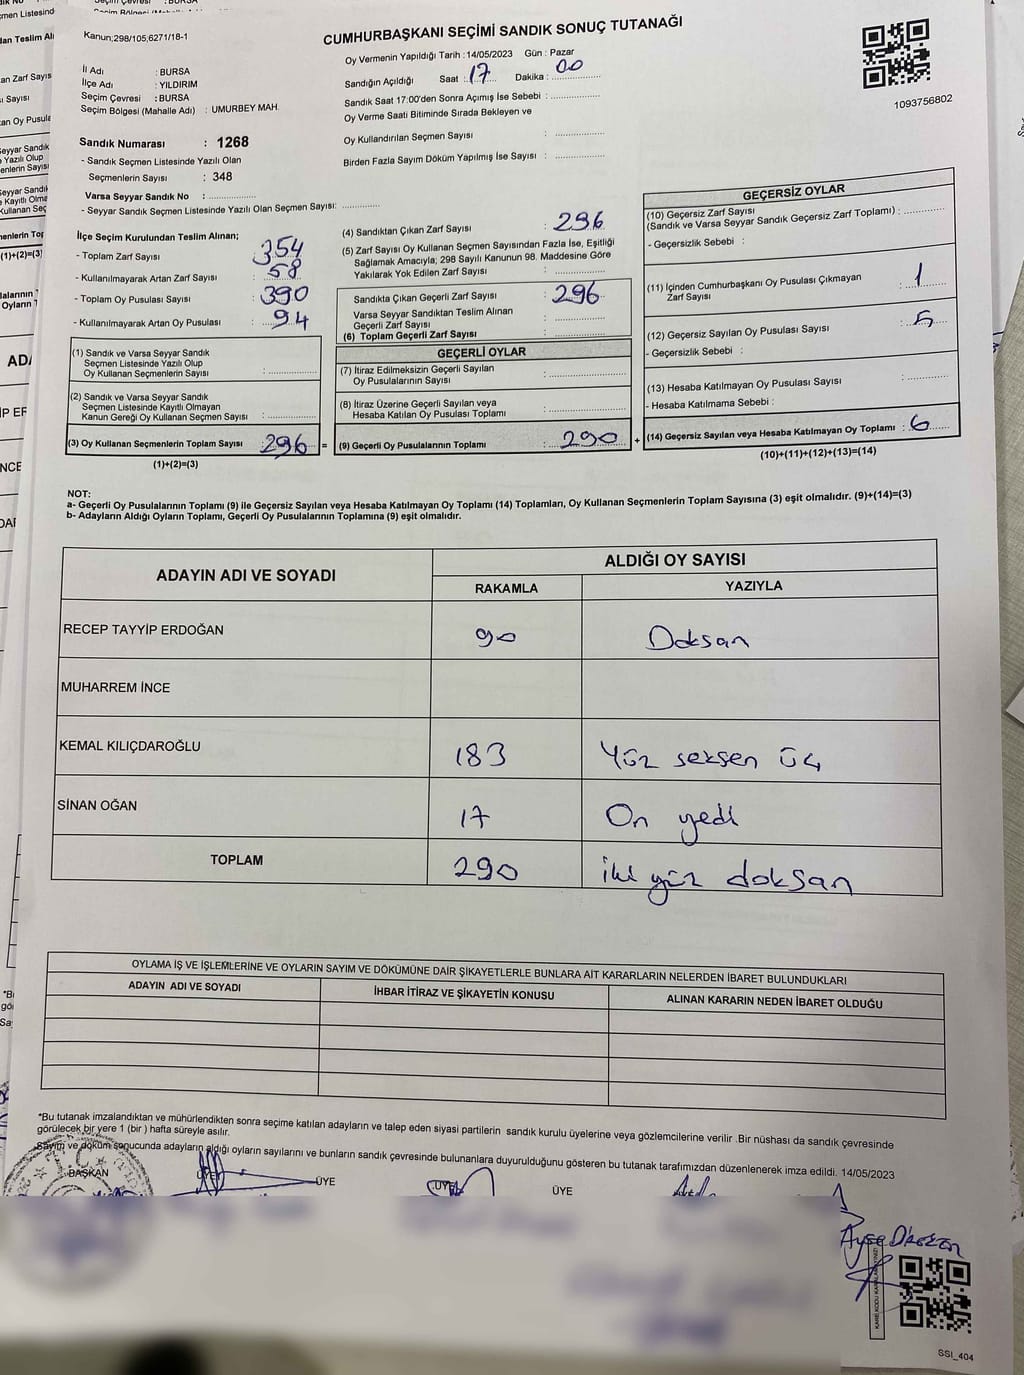 Kanun;298/105,6271/18-1
CUMHURBAŞKANI SEÇİMİ SANDIK SONUÇ TUTANAĞI
İl Adı : BURSA
İlçe Adı : YILDIRIM
Seçim Çevresi : BURSA
Seçim Bölgesi (Mahalle Adı) : UMURBEY MAH.
Oy Vermenin Yapıldığı Tarih : 14/05/2023 Gün : Pazar
Sandığın Açıldığı Saat : 17 Dakika : 00
Sandık Saat 17:00'den Sonra Açımış İse Sebebi :
Oy Verme Saati Bitiminde Sırada Bekleyen ve
Oy Kullandırılan Seçmen Sayısı :
Birden Fazla Sayım Döküm Yapılmış İse Sayısı :
1093756802
Sandık Numarası : 1268
- Sandık Seçmen Listesinde Yazılı Olan
Seçmenlerin Sayısı : 348
Varsa Seyyar Sandık No :
- Seyyar Sandık Seçmen Listesinde Yazılı Olan Seçmen Sayısı:
İlçe Seçim Kurulundan Teslim Alınan;
- Toplam Zarf Sayısı : 354
- Kullanılmayarak Artan Zarf Sayısı : 58
- Toplam Oy Pusulası Sayısı : 390
- Kullanılmayarak Artan Oy Pusulası : 94
(1) Sandık ve Varsa Seyyar Sandık
Seçmen Listesinde Yazılı Olup
Oy Kullanan Seçmenlerin Sayısı :
(2) Sandık ve Varsa Seyyar Sandık
Seçmen Listesinde Kayıtlı Olmayan
Kanun Gereği Oy Kullanan Seçmen Sayısı :
(3) Oy Kullanan Seçmenlerin Toplam Sayısı : 296 =
(1)+(2)=(3)
(4) Sandıktan Çıkan Zarf Sayısı : 296
(5) Zarf Sayısı Oy Kullanan Seçmen Sayısından Fazla İse, Eşitliği
Sağlamak Amacıyla; 298 Sayılı Kanunun 98. Maddesine Göre
Yakılarak Yok Edilen Zarf Sayısı :
Sandıkta Çıkan Geçerli Zarf Sayısı : 296
Varsa Seyyar Sandıktan Teslim Alınan
Geçerli Zarf Sayısı :
(6) Toplam Geçerli Zarf Sayısı :
GEÇERLİ OYLAR
(7) İtiraz Edilmeksizin Geçerli Sayılan
Oy Pusulalarının Sayısı :
(8) İtiraz Üzerine Geçerli Sayılan veya
Hesaba Katılan Oy Pusulası Toplamı :
(9) Geçerli Oy Pusulalarının Toplamı : 290 +
GEÇERSİZ OYLAR
(10) Geçersiz Zarf Sayısı
(Sandık ve Varsa Seyyar Sandık Geçersiz Zarf Toplamı) :
- Geçersizlik Sebebi :
(11) İçinden Cumhurbaşkanı Oy Pusulası Çıkmayan
Zarf Sayısı : 1
(12) Geçersiz Sayılan Oy Pusulası Sayısı : 5
- Geçersizlik Sebebi :
(13) Hesaba Katılmayan Oy Pusulası Sayısı :
- Hesaba Katılmama Sebebi :
(14) Geçersiz Sayılan veya Hesaba Katılmayan Oy Toplamı : 6
(10)+(11)+(12)+(13)=(14)
NOT:
a- Geçerli Oy Pusulalarının Toplamı (9) ile Geçersiz Sayılan veya Hesaba Katılmayan Oy Toplamı (14) Toplamları, Oy Kullanan Seçmenlerin Toplam Sayısına (3) eşit olmalıdır. (9)+(14)=(3)
b- Adayların Aldığı Oyların Toplamı, Geçerli Oy Pusulalarının Toplamına (9) eşit olmalıdır.
ADAYIN ADI VE SOYADI ALDIĞI OY SAYISI
RAKAMLA YAZIYLA
RECEP TAYYİP ERDOĞAN 90 Doksan
MUHARREM İNCE
KEMAL KILIÇDAROĞLU 183 Yüz seksen üç
SİNAN OĞAN 17 On yedi
TOPLAM 290 iki yüz doksan
OYLAMA İŞ VE İŞLEMLERİNE VE OYLARIN SAYIM VE DÖKÜMÜNE DAİR ŞİKAYETLERLE BUNLARA AİT KARARLARIN NELERDEN İBARET BULUNDUKLARI
ADAYIN ADI VE SOYADI İHBAR İTİRAZ VE ŞİKAYETİN KONUSU ALINAN KARARIN NEDEN İBARET OLDUĞU
*Bu tutanak imzalandıktan ve mühürlendikten sonra seçime katılan adayların ve talep eden siyasi partilerin sandık kurulu üyelerine veya gözlemcilerine verilir .Bir nüshası da sandık çevresinde
görülecek bir yere 1 (bir ) hafta süreyle asılır.
Sayım ve döküm sonucunda adayların aldığı oyların sayılarını ve bunların sandık çevresinde bulunanlara duyurulduğunu gösteren bu tutanak tarafımızdan düzenlenerek imza edildi. 14/05/2023
BAŞKAN ÜYE ÜYE ÜYE ÜYE
Ayşe
SSI_404